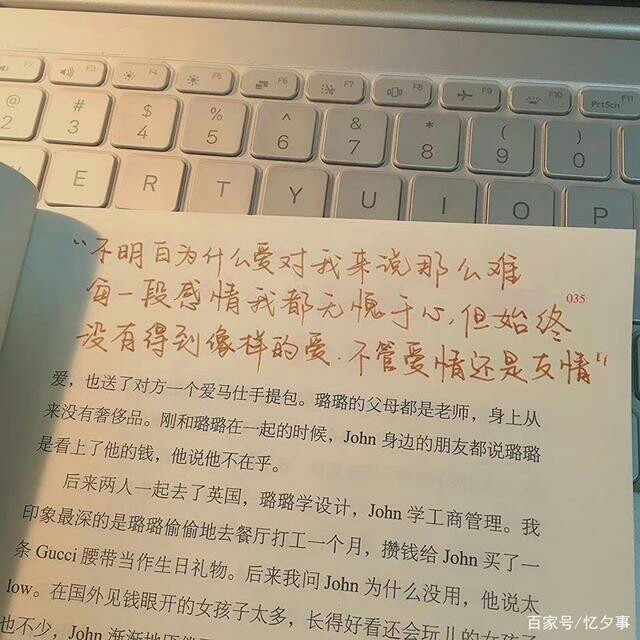 F2 F3 F4 F5 F6 F7 F8 F9 F10 F11
PrtScn
@ # $ % ^ & * ( )
2 3 4 5 6 7 8 9 0
E R T Y U I O P
“不明白为什么爱对我来说那么难
每一段感情我都无愧于心,但始终
035
没有得到像样的爱.不管爱情还是友情”
爱，也送了对方一个爱马仕手提包。璐璐的父母都是老师，身上从
来没有奢侈品。刚和璐璐在一起的时候，John 身边的朋友都说璐璐
是看上了他的钱，他说他不在乎。
后来两人一起去了英国，璐璐学设计，John 学工商管理。我
印象最深的是璐璐偷偷地去餐厅打工一个月，攒钱给 John 买了一
条 Gucci 腰带当作生日礼物。后来我问 John 为什么没用，他说太
low。在国外见钱眼开的女孩子太多，长得好看还会玩儿的女孩子
也不少，John 渐渐地
百家号/忆夕事